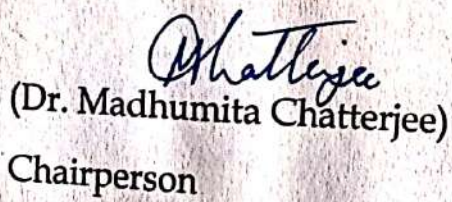 MChatterjee
(Dr. Madhumita Chatterjee)
Chairperson